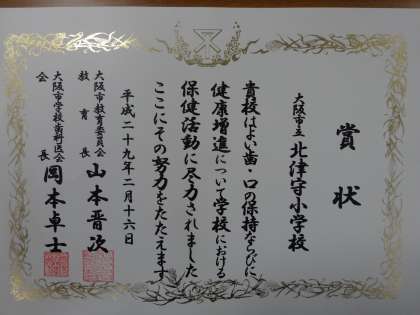 賞状
大阪市立 北津守小学校
貴校はよい歯・口の保持ならびに
健康増進について学校における
保健活動に尽力されました
ここにその努力をたたえます
平成二十九年二月十六日
大阪市教育委員会
教育長 山本晋次
大阪市学校歯科医会
会長 岡本卓士